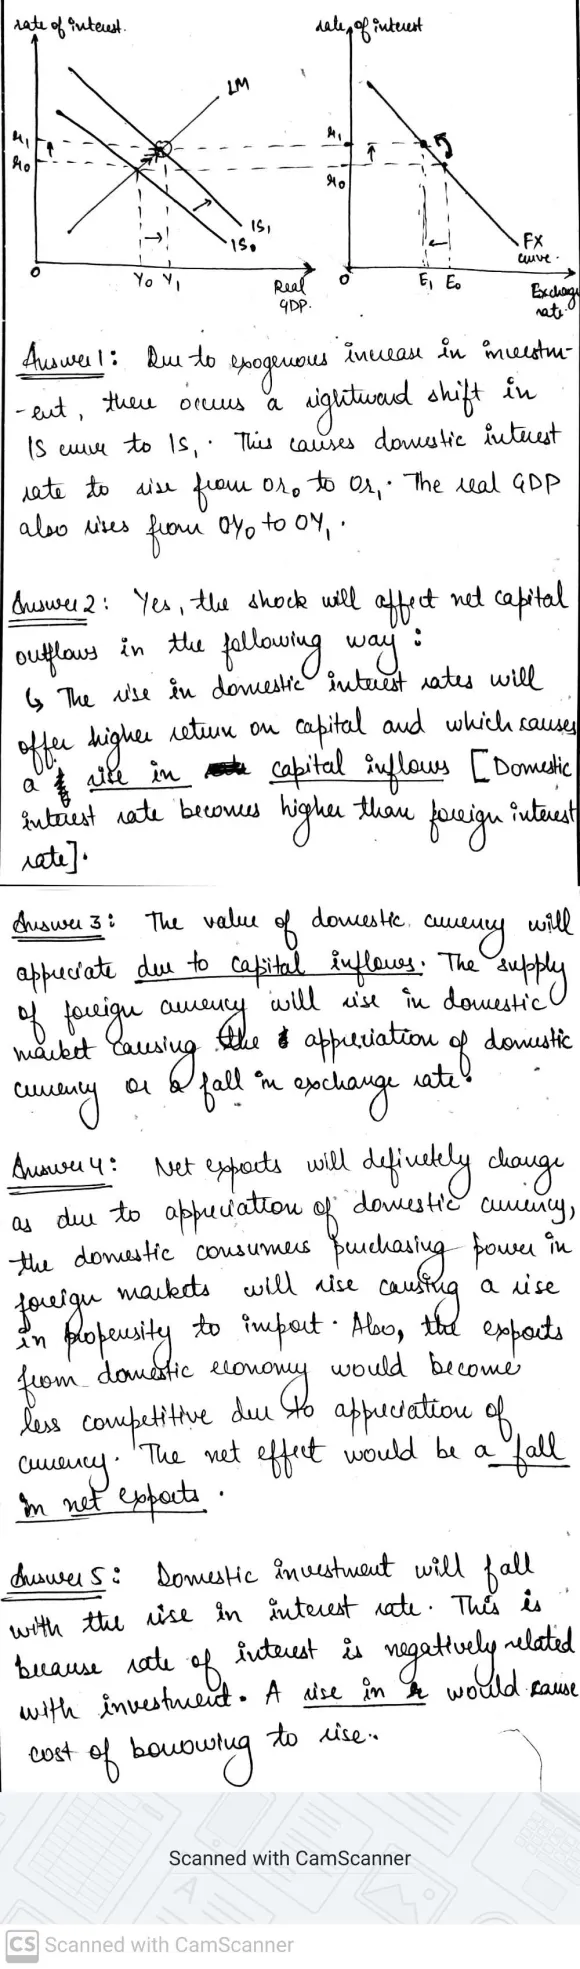 rate of interest.
rate of interest
LM
r1
r0
IS1
IS0
0
Y0 Y1
Real
GDP.
r1
r0
FX
curve.
0
E1 E0
Exchange
rate.
Answer 1: Due to exogenous increase in investm-
-ent, there occurs a rightward shift in
IS curve to IS1. This causes domestic interest
rate to rise from or0 to or1. The real GDP
also rises from OY0 to OY1.
Answer 2: Yes, the shock will affect net capital
outflows in the following way:
↳ The rise in domestic interest rates will
offer higher return on capital and which causes
a rise in capital inflows [Domestic
interest rate becomes higher than foreign interest
rate].
Answer 3: The value of domestic currency will
appreciate due to capital inflows. The supply
of foreign currency will rise in domestic
market causing the appreciation of domestic
currency or a fall in exchange rate.
Answer 4: Net exports will definetely change
as due to appreciation of domestic currency,
the domestic consumers purchasing power in
foreign markets will rise causing a rise
in propensity to import. Also, the exports
from domestic economy would become
less competitive due to appreciation of
currency. The net effect would be a fall
in net exports.
Answer 5: Domestic investment will fall
with the rise in interest rate. This is
because rate of interest is negatively related
with investment. A rise in r would cause
cost of borrowing to rise.
Scanned with CamScanner
CS Scanned with CamScanner